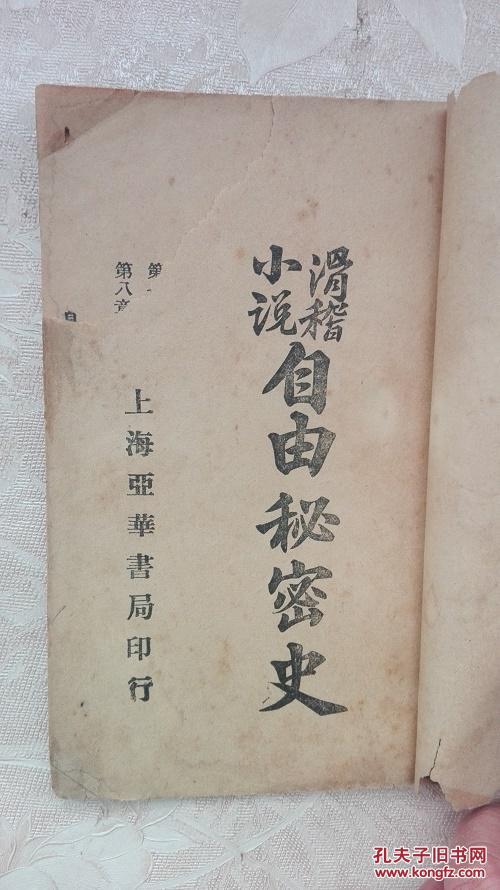 滑稽
小说
自由秘密史
上海亞華書局印行
第
第八章
孔夫子旧书网
www.kongfz.com